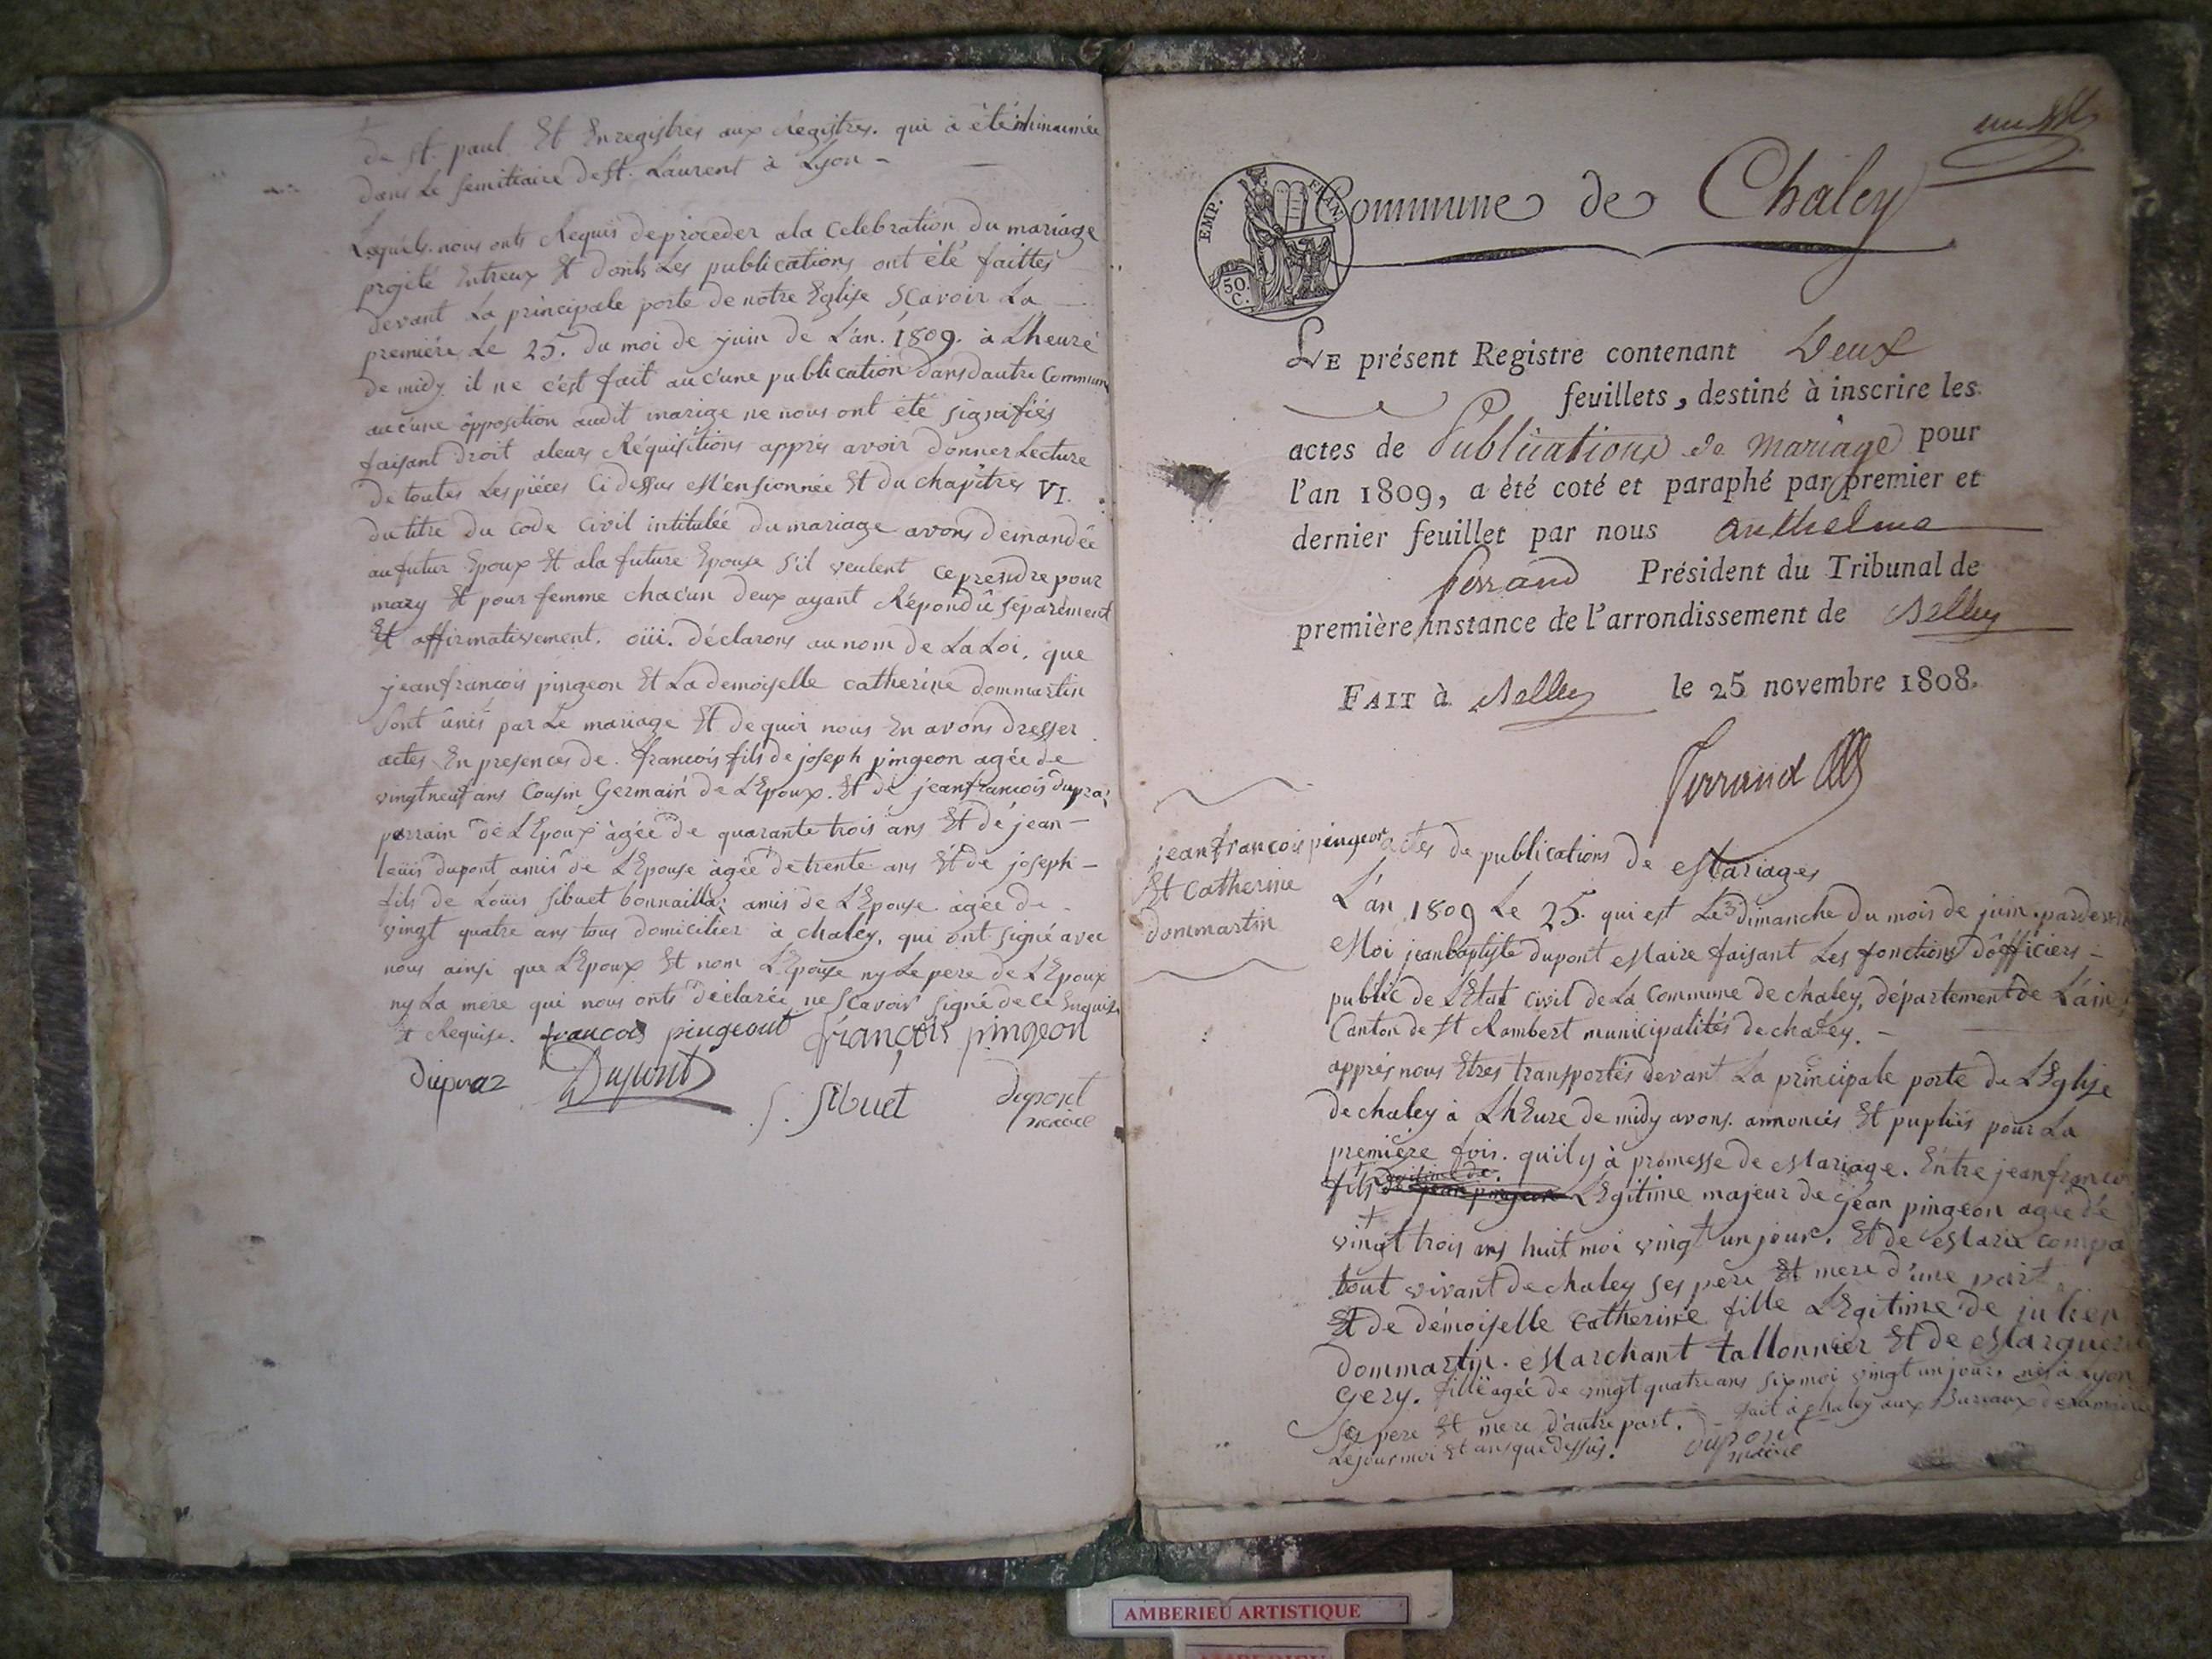 de st. paul Et Enregistrés aux Registres. qui a été inhumée
dans Le semitiaire de st. Laurent à Lyon -
Lequels nous onts Requis de procéder ala Celebration du mariage
projété Entreux Et donts Les publications ont été faittes
devant La principale porte de notre Eglise Scavoir La
premiére Le 25. du moi de juin de L'an. 1809. à Lheure
de midy il ne c'est fait auc'une publication dans dautre Commun
auc'une opposition audit marige ne nous ont été signifiés
faisant droit aleurs Réquisitions apprés avoir donner Lecture
de toutes Les piéces Ci dessus Mensionnée Et du chapitres VI.
du titre du Code Civil intitulée du mariage avons demandée
au futur Epoux Et ala future Epouse S'il veulent ce prendre pour
mary Et pour femme chac'un deux ayant Répondû séparément
Et affirmativement. oüi. déclarons au nom de La Loi. que
jeanfrancois pingeon Et La demoiselle catherine dommartin
sont ünis par Le mariage Et de quoi nous En avons dresser
actes En presences de. francois fils de joseph pingeon agée de
vingtneuf ans Cousin Germain de L'Epoux. Et de jeanfrancois Dupraz
parrain de L'Epoux àgée de quarante trois ans Et de jean-
loüis dupont amis de L'Epouse àgée de trente ans Et de joseph -
fils de Loüis Sibuet bonnaillà; amis de L'Epouse agée de
vingt quatre ans tous domicilier à chaley, qui ont signé avec
nous ainsi que L'Epoux Et nom L'Epouse ny Le pere de L'Epoux
ny La mére qui nous onts déclarée ne Scavoir signé de ce Enquis
Et Requise. francois pingeont françois pingeon
dupraz Dupont J. Sibuet dupont
maire
Commune de Chaley
EMP. FRAN.
50. C.
LE présent Registre contenant Deux
feuillets, destiné à inscrire les
actes de Publications de Mariage pour
l'an 1809, a été coté et paraphé par premier et
dernier feuillet par nous Anthelme
Ferrand Président du Tribunal de
première instance de l'arrondissement de Belley
FAIT à Belley le 25 novembre 1808.
Ferrand
jeanfrancois pingeon
Et Catherine
dommartin
actes de publications de Mariages
L'an 1809 Le 25. qui est Le 3 dimanche du mois de juin. pardevan
Moi jeanbaptiste dupont Maire faisant Les fonctions d'officiers -
public de L'Etat civil de La Commune de chaley, département de L'ain
Canton de St Rambert municipalités de chaley. -
apprés nous Etres transportés devant La principale porte de L'Eglise
de chaley à LhEure de midy avons. annoncés Et pupliés pour La
premiére fois. qu'il y à promesse de Mariage. Entre jeanfranco
fils LEgitime majeur de jean pingeon agée de
vingt trois ans huit moi vingt un jour. Et de Marie compa
tout vivant de chaley ses pére Et mere d'une part
Et de démoiselle Catherine fille LEgitime de julien
Dommartin. Marchant tallonnier Et de Marguer
Gery. fille agée de vingt quatre ans six moi vingt un jours. nés à Lyon
ses pere Et mere d'autre part. fait à chaley aux Bureaux de La mairie
Le jour moi Et ans que dessûs. dupont
maire
AMBERIEU ARTISTIQUE
AMBERIEU